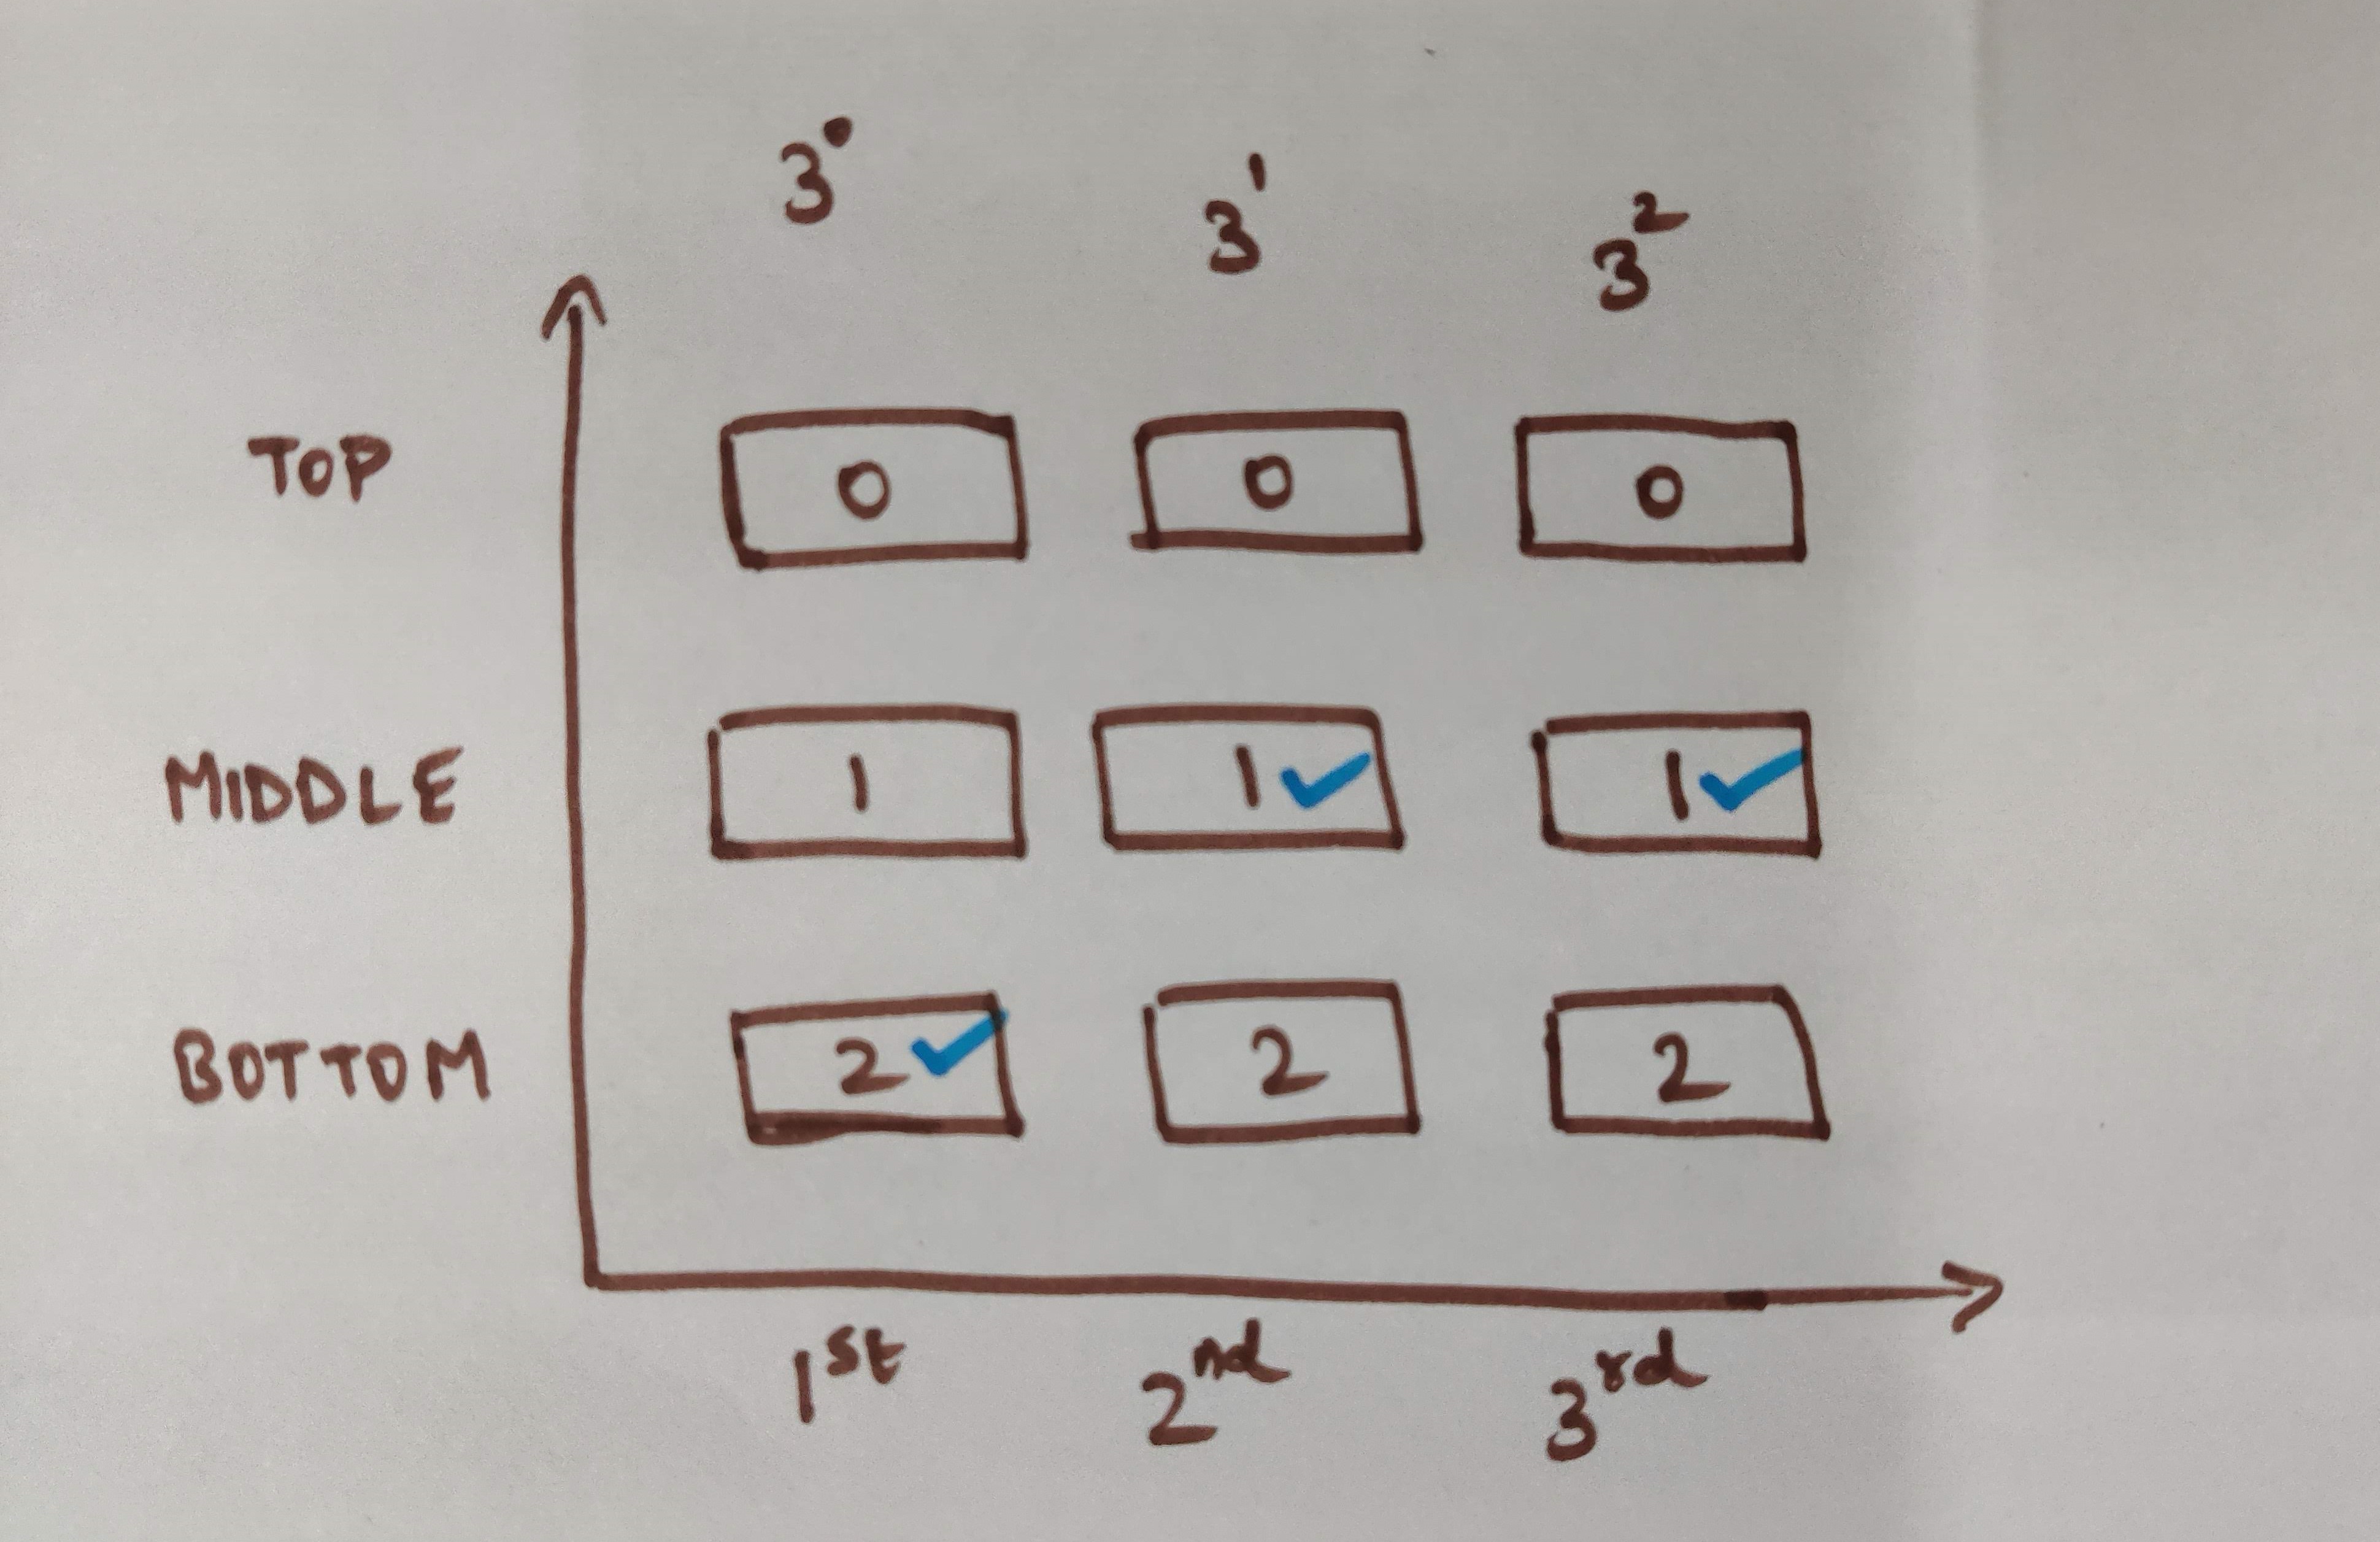 3⁰ 3¹ 3²
TOP 0 0 0
MIDDLE 1 1✓ 1✓
BOTTOM 2✓ 2 2
1st 2nd 3rd